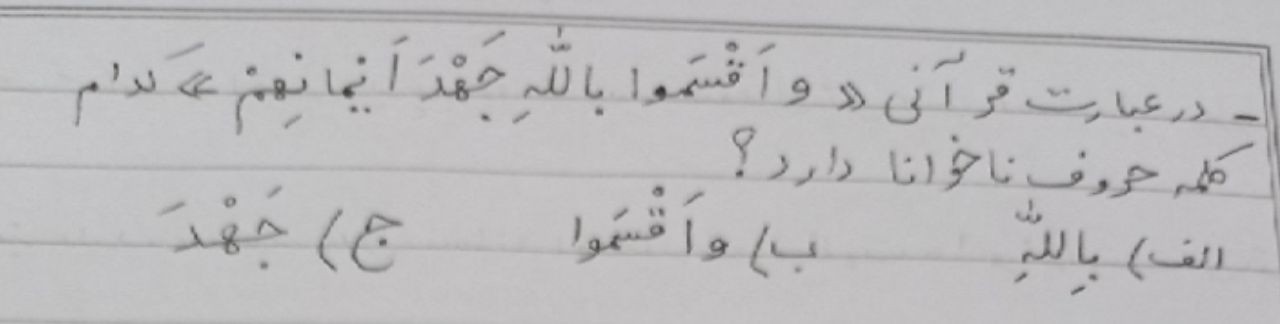 - در عبارت قرآنی « و اَقْسَموا باللّهِ جَهْدَ اَیْمانِهِمْ » کدام
کلمه حروف ناخوانا دارد؟
الف) بِاللّهِ ب) و اَقْسَموا ج) جَهْدَ